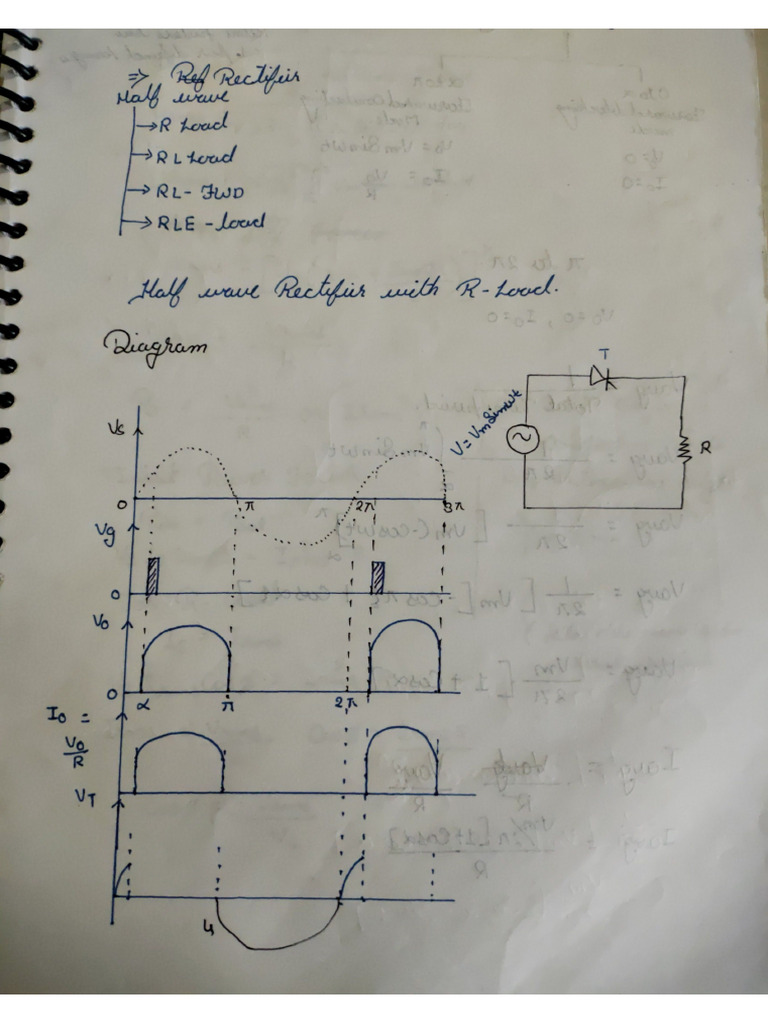 ⇒ Ref Rectifier
Half wave
→ R Load
→ RL Load
→ RL- FWD
→ RLE - load
Half wave Rectifier with R-Load.
Diagram
T
V = Vm Sinwt
R
Vs
0 π 2π 3π
Vg
0
Vo
0 α π 2π
Io =
Vo/R
VT